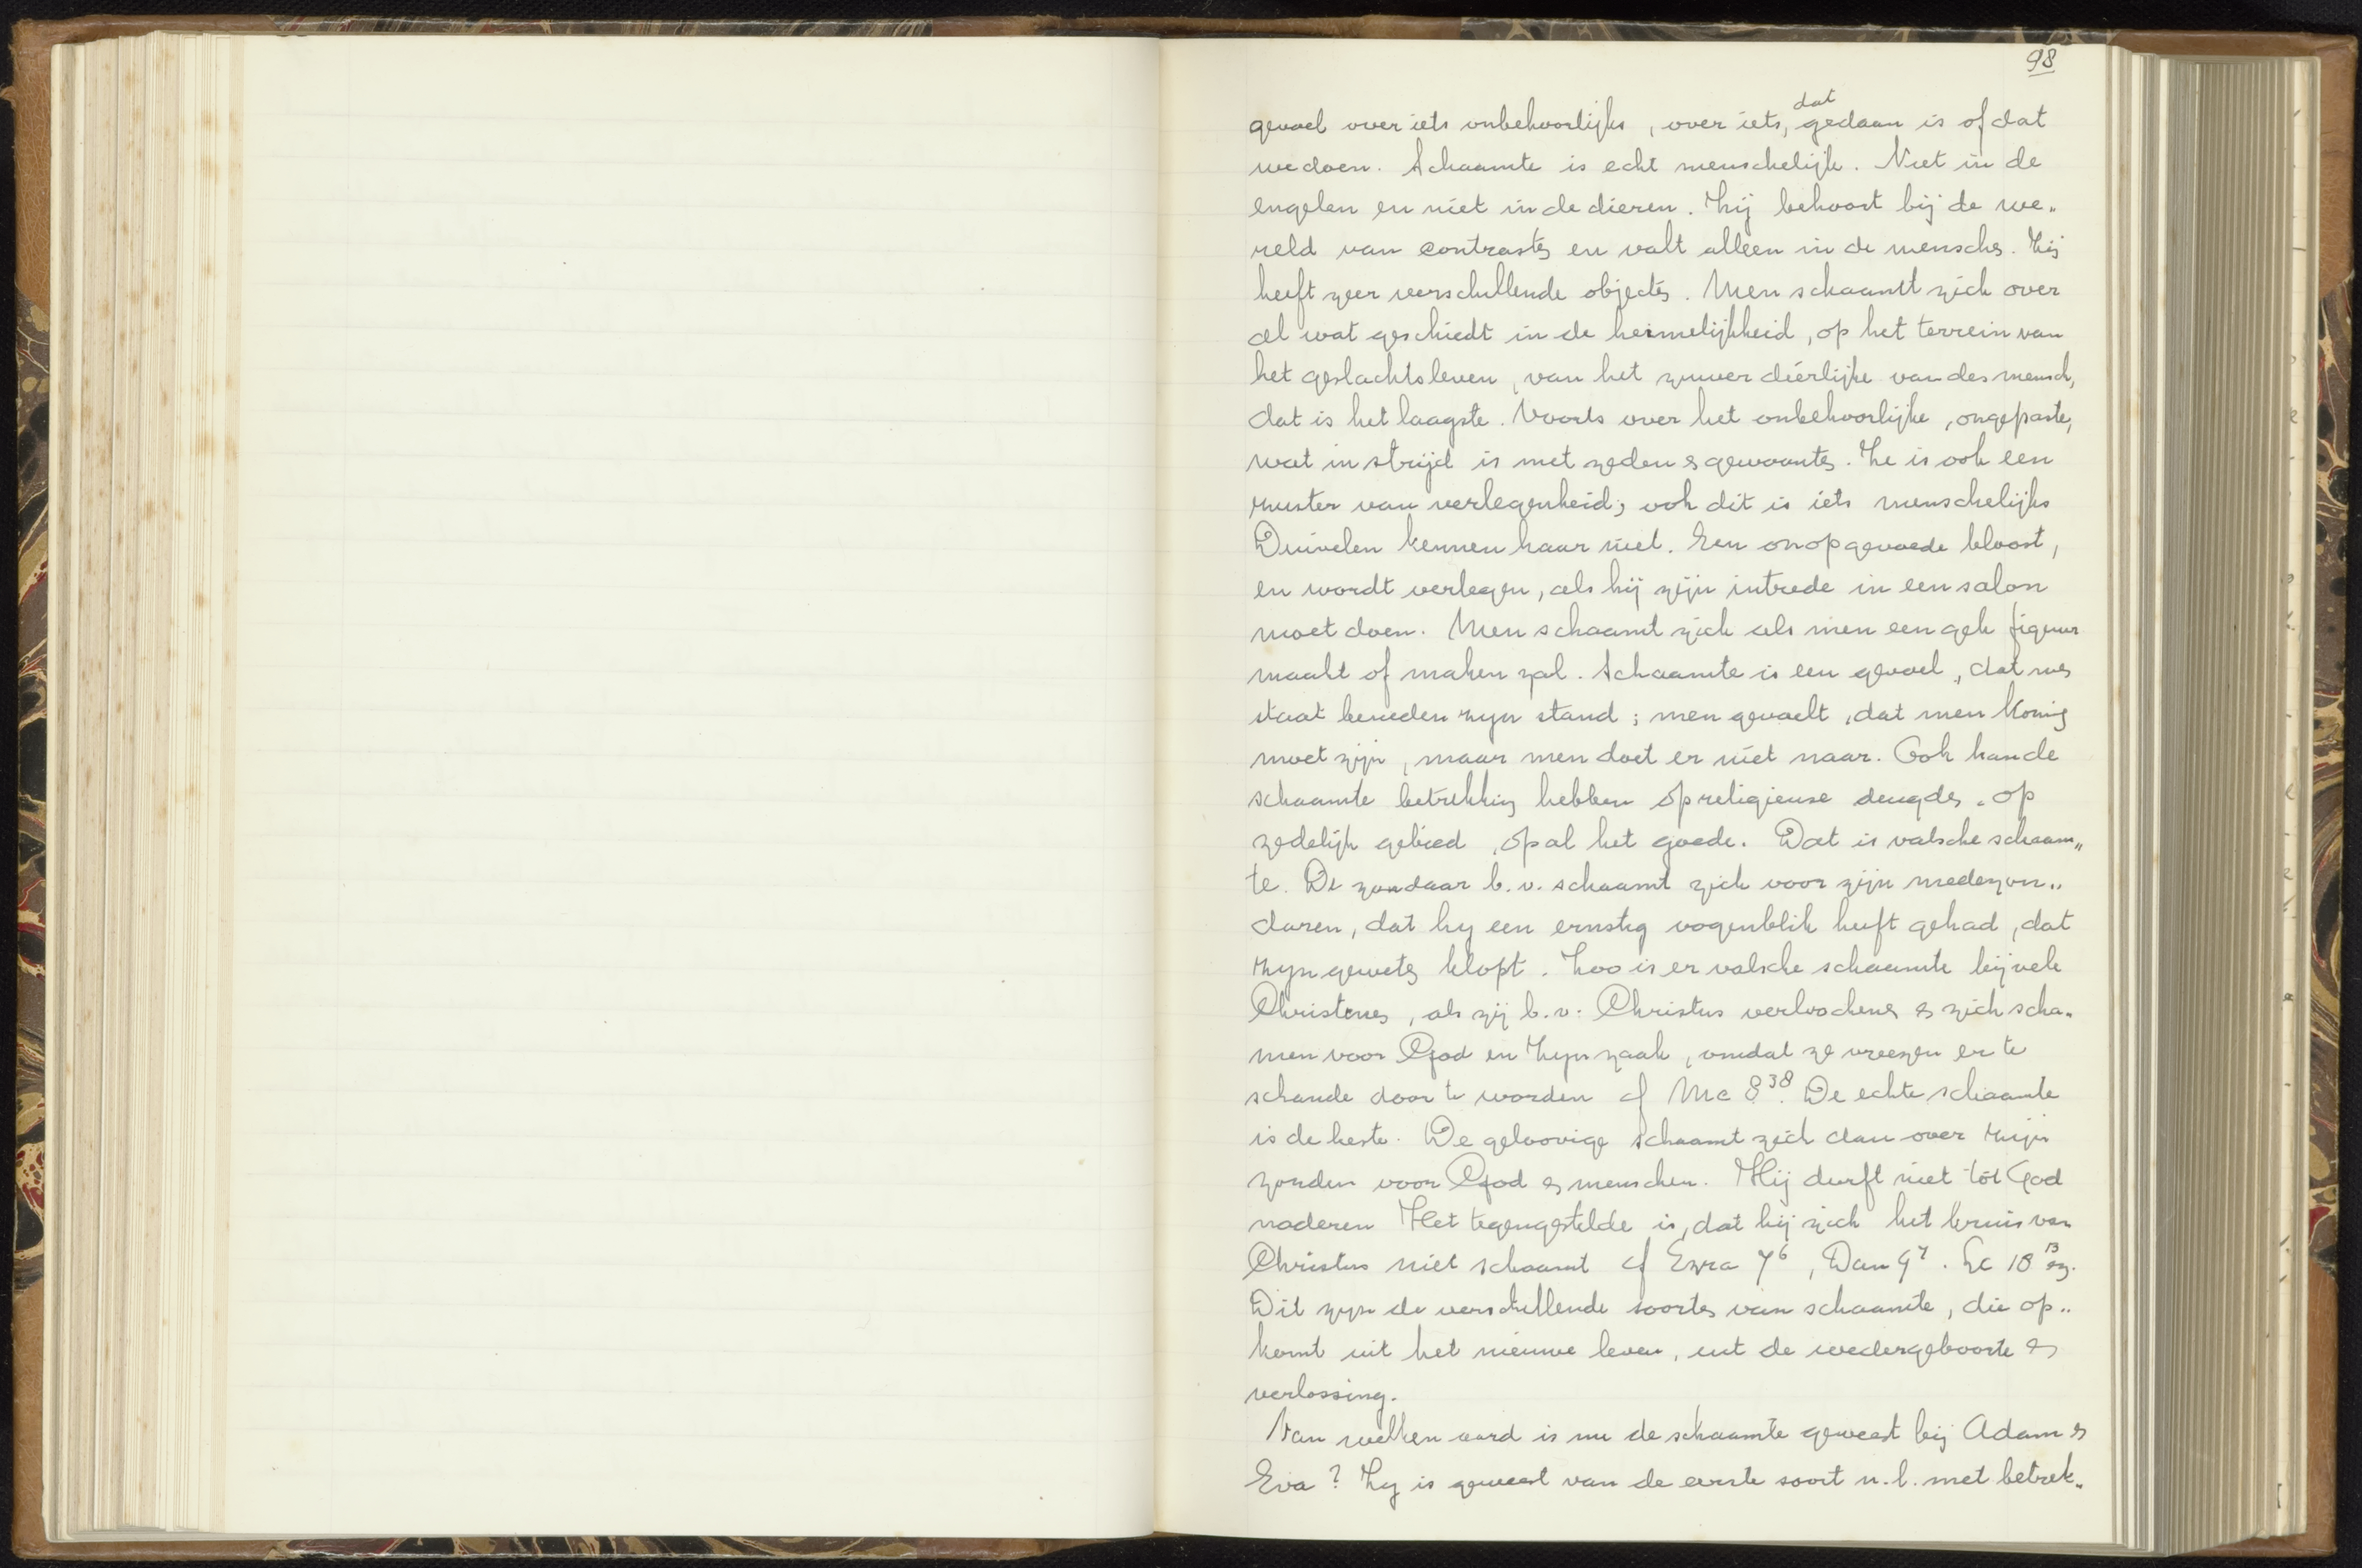 98
dat
gevoel over iets onbehoorlijks, over iets, gedaan is of dat
we doen. Schaamte is echt menschelijk. Niet in de
engelen en niet in de dieren. Zij behoort bij de we„
reld van contrasten en valt alleen in de menschen. Zij
heeft zeer verschillende objecten. Men schaamt zich over
al wat geschiedt in de heimelijkheid, op het terrein van
het geslachtsleven, van het zuiver dierlijke van des mensch,
dat is het laagste. Voorts over het onbehoorlijke, ongepaste,
wat in strijd is met zeden en gewoonten. Ze is ook een
zuster van verlegenheid; ook dit is iets menschelijks
Duivelen kennen haar niet. Een onopgevoede bloost,
en wordt verlegen, als hij zijn intrede in een salon
moet doen. Men schaamt zich als men een gek figuur
maakt of maken zal. Schaamte is een gevoel, dat men
staat beneden zijn stand; men gevoelt, dat men koning
moet zijn, maar men doet er niet naar. Ook kan de
schaamte betrekking hebben op religieuse deugden, op
zedelijk gebied, op al het goede. Dat is valsche schaam„
te. De zondaar b.v. schaamt zich voor zijn medezon„
daren, dat hij een ernstig oogenblik heeft gehad, dat
zijn geweten klopt. Zoo is er valsche schaamte bij vele
Christenen, als zij b.v. Christus verloochenen en zich scha„
men voor God en Zijn zaak, omdat ze vreezen er te
schande door te worden cf Mc 8³⁸. De echte schaamte
is de beste. De geloovige schaamt zich dan over zijn
zonden voor God en menschen. Hij durft niet tot God
naderen Het tegengestelde is, dat hij zich het kruis van
Christus niet schaamt cf Ezra 9⁶, Dan 9⁷. Lc 18¹³ en.
Dit zijn de verschillende soorten van schaamte, die op„
komt uit het nieuwe leven, uit de wedergeboorte en
verlossing.
Van welken aard is nu de schaamte geweest bij Adam en
Eva? Zij is geweest van de eerste soort n.l. met betrek„